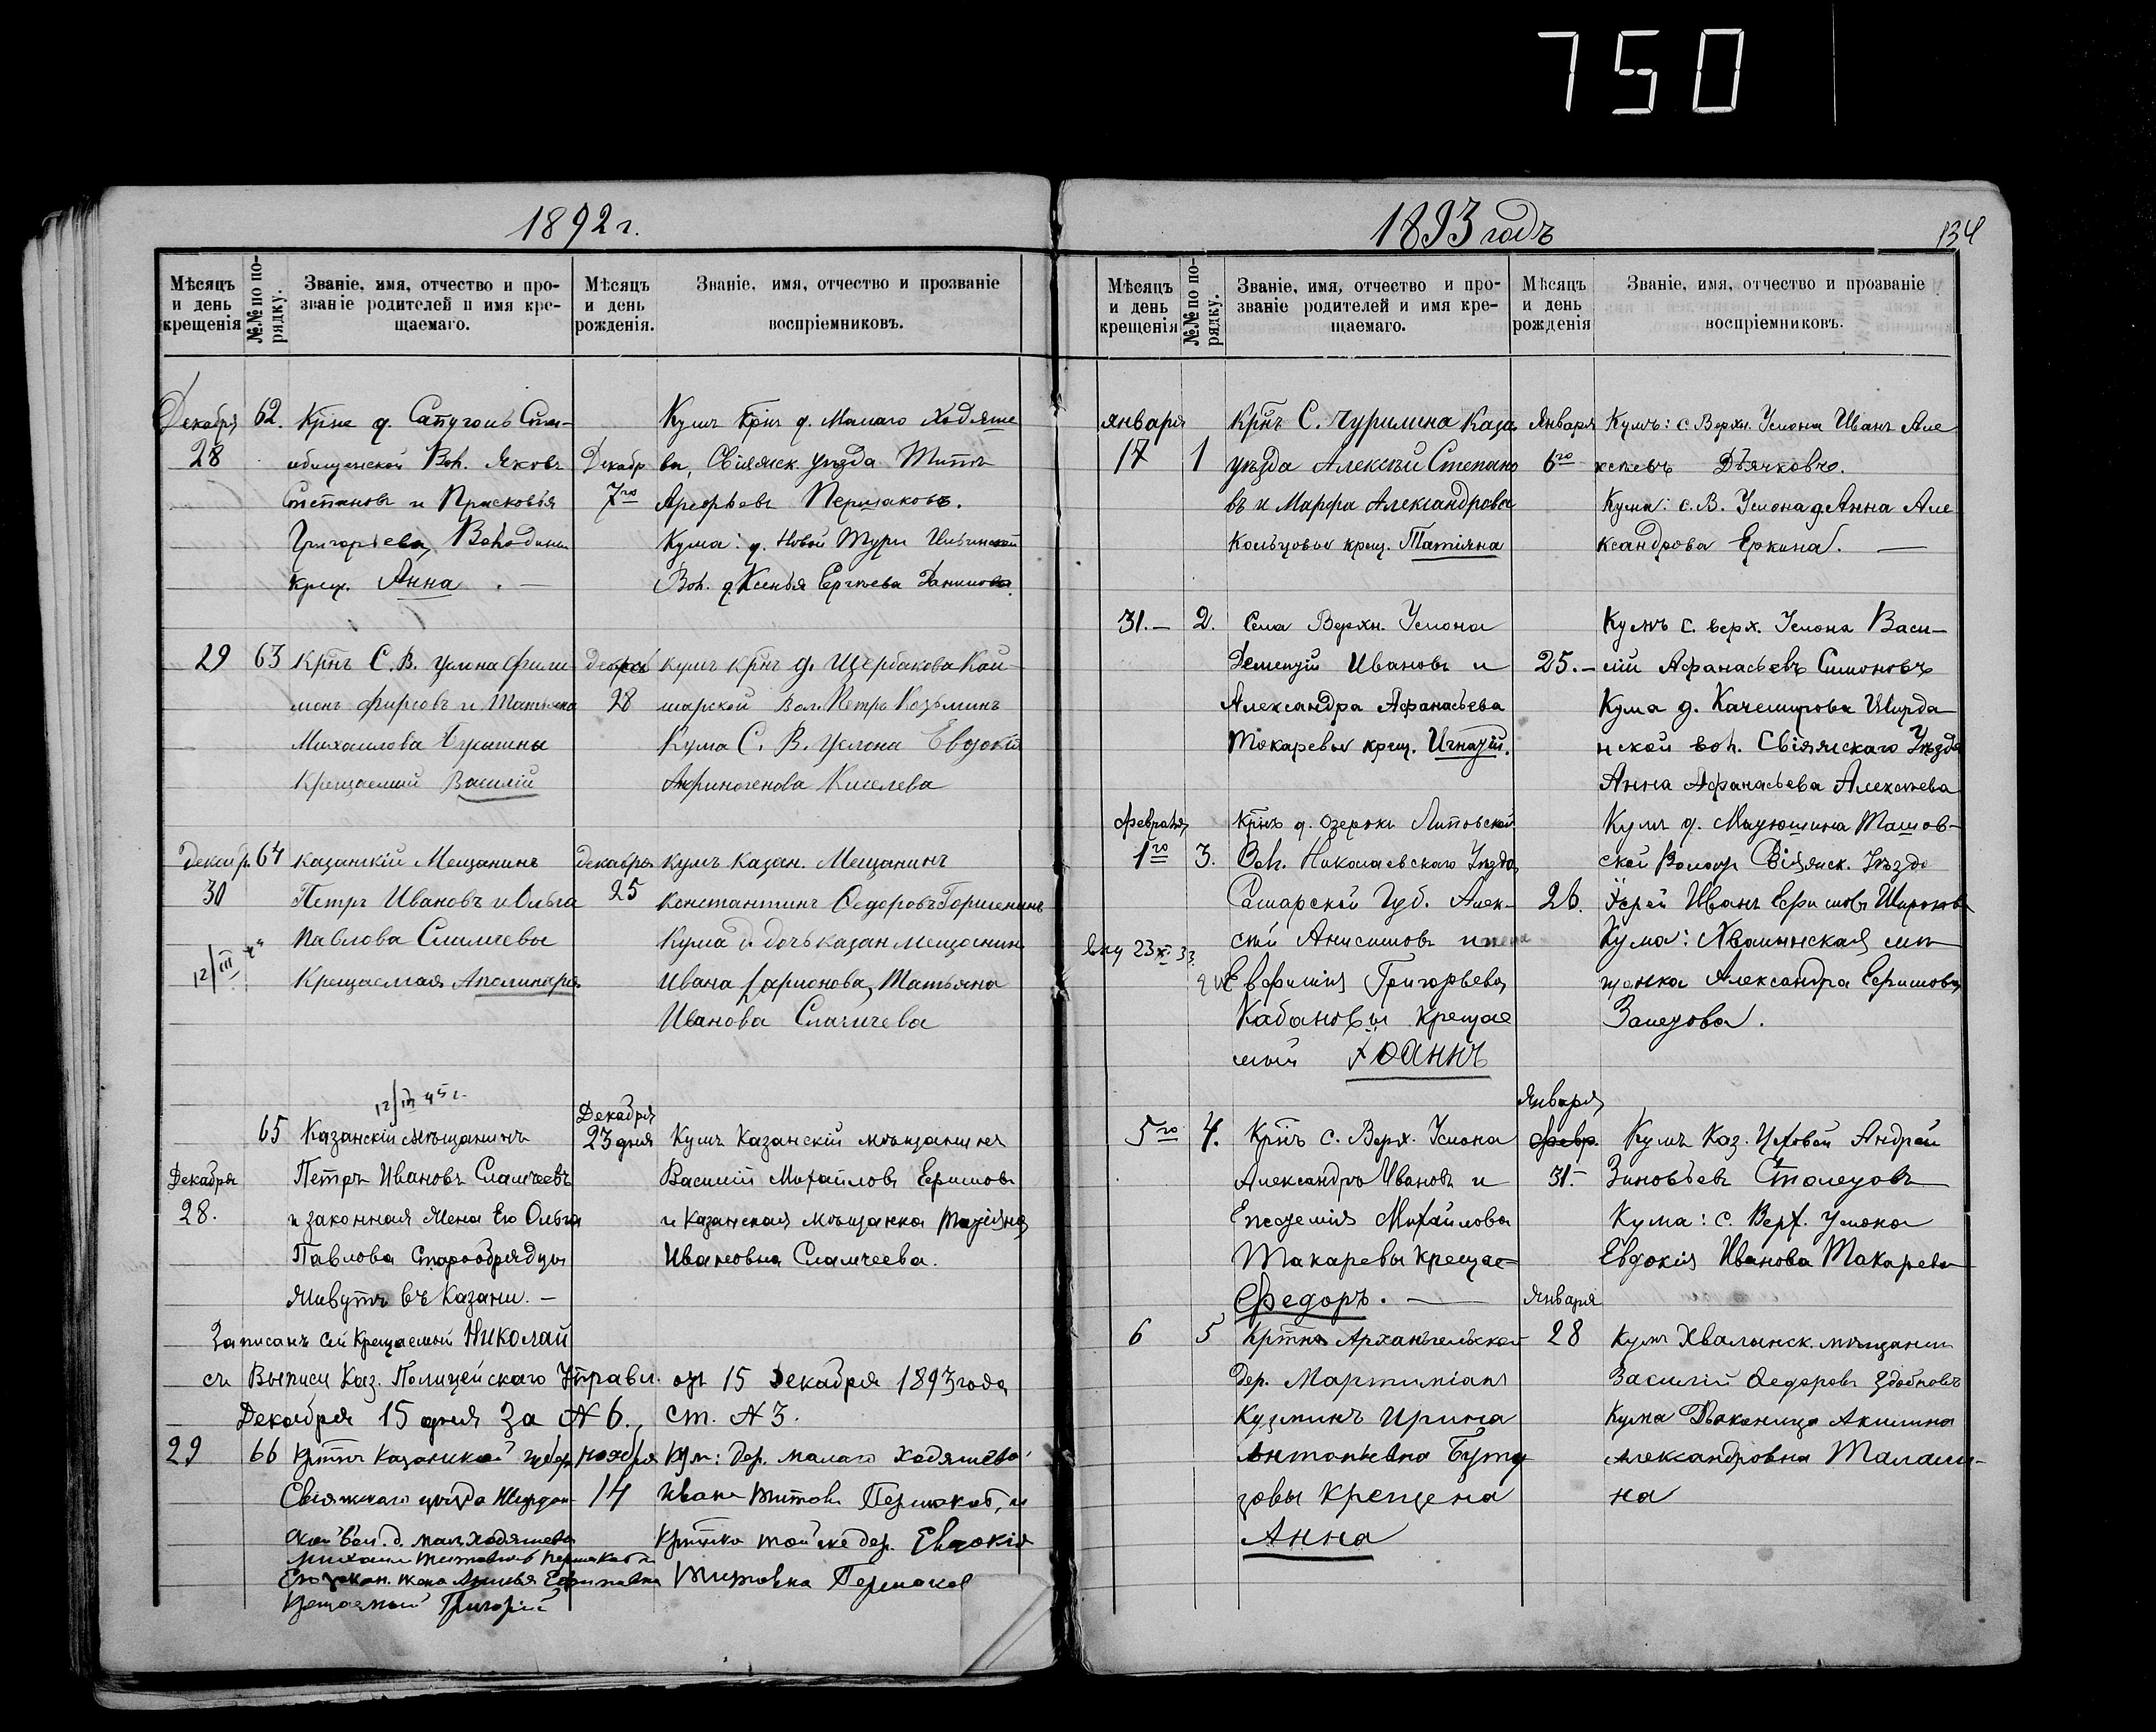 750
1892 г.
Мѣсяцъ и день крещенія
№№ по порядку.
Званіе, имя, отчество и прозваніе родителей и имя крещаемаго.
Мѣсяцъ и день рожденія.
Званіе, имя, отчество и прозваніе воспріемниковъ.
Декабря 28
62.
Крѣне д.
Вол. Яковъ
Степановъ и Прасковья
Григорьева
крещ. Анна. —
Декабр 7го
Кумъ Крнъ д. Малаго Ходяше
ва, Свіяжск. уѣзда Титъ
Арефьевъ Першаковъ.
Кума: д. Новой Тури Ильинской
Вол. д. Ксенья Сергѣева Данилова.
29
63
Крнъ С. В. Услона Фили
монъ Фирсовъ и Татьяна
Михаилова
Крещаемый Василій
28
кумъ крнъ д. Щербакова Кай
марской Вол. Петръ Козьминъ
Кума С. В. Услона Евдокія
Анфиногенова Киселева
Декабр. 30
64
Казанскій Мещанинъ
Петръ Ивановъ и Ольга
Павлова Сламчевы
Крещаемая Аполинарія
12/III
Декабря 25
Кумъ Казан. Мещанинъ
Константинъ Ѳедоровъ
Кума дочь казан мещанина
Ивана Ларионова, Татьяна
Иванова Сламчева
12/III 45 г.
Декабря 28.
65
Казанскій мѣщанинъ
Петръ Ивановъ Сламчеевъ
и законная жена Его Ольга
Павлова Старообрядцы
живутъ въ Казани. —
Декабря 23 дня
Кумъ Казанскій мѣщанинъ
Василій Михайловъ Ефимовъ
и Казанская мѣщанка Татіяна
Ивановна Сламчеева.
Записанъ сей Крещаемый Николай
съ Выписи Каз. Полицейскаго Управл. отъ 15 Декабря 1893 года
Декабря 15 дня За № 6., ст. № 3.
29
66
Крѣтнъ Казанской губер
Свіяжскаго уѣзда Ширдан
ской Вол. д. мал Ходяшева
Михаилъ Титовичъ Першаковъ и
Его закон. жена
Крещаемый Григорій
ноября 14
Кум: Дер. малаго Ходяшева
Иванъ Титовъ Першаков, и
Крѣтнка той же дер. Евдокія
Титовна Першаков
1893 годъ
134
Мѣсяцъ и день крещенія
№№ по порядку.
Званіе, имя, отчество и прозваніе родителей и имя крещаемаго.
Мѣсяцъ и день рожденія
Званіе, имя, отчество и прозваніе воспріемниковъ.
января 17
1
Крнъ С. Чурилина Каза
уѣзда Алексѣй Степано
въ и Марфа Александрова
Кольцовы крещ. Татіяна
Января 6го
Кумъ: с. Верхн. Услона Иванъ Але
ксѣевъ Дьячковъ.
Кума: с. В. Услона д. Анна Але
ксандрова Еркина. —
31. —
2.
Села Верхн. Услона
Дементій Ивановъ и
Александра Афанасьева
Токаревы крещ. Игнатій.
25. —
Кумъ с. верх. Услона Васи—
лій Афанасьевъ Симоновъ
Кума д. Качемирова Ширда
нской вол. Свіяжскаго Уѣзда
Анна Афанасьева Алексѣева
Февраля 1го
3.
Крнъ д. Озерокъ Липовской
Вол. Николаевскаго Уѣзда
Самарской Губ. Алек-
сѣй Анисимовъ и
Евфимія Григорьева
Кабановы Крещае
мый Іоаннъ
23 XI 33
26.
Кумъ д. Матюшина Ташов-
ской Волост Свіяжск. Уѣзда
Іерей Иванъ Ефимовъ Широковъ
Кума: Хвалынская мѣ
щанка Александра Ефимова
5го
4.
Крнъ с. Верх. Услона
Александръ Ивановъ и
Михайлова
Макаревы Крещае—
Федоръ. —
Января
февр.
31. —
Кумъ Каз. Цеховой Андрей
Зиновьевъ Столетовъ
Кума: с. Верх. Услона
Евдокія Иванова Макарева
6
5
Крѣтнъ Архангельской
Дер. Мартиніанъ
Кузминъ Ирина
Антоньевна
Крещена
Анна
Января 28
Кумъ Хвалынск. мѣщанин
Василій Ѳедоровъ Здобновъ
Кума Дьяконица Акилина
Александровна Малаши-
на